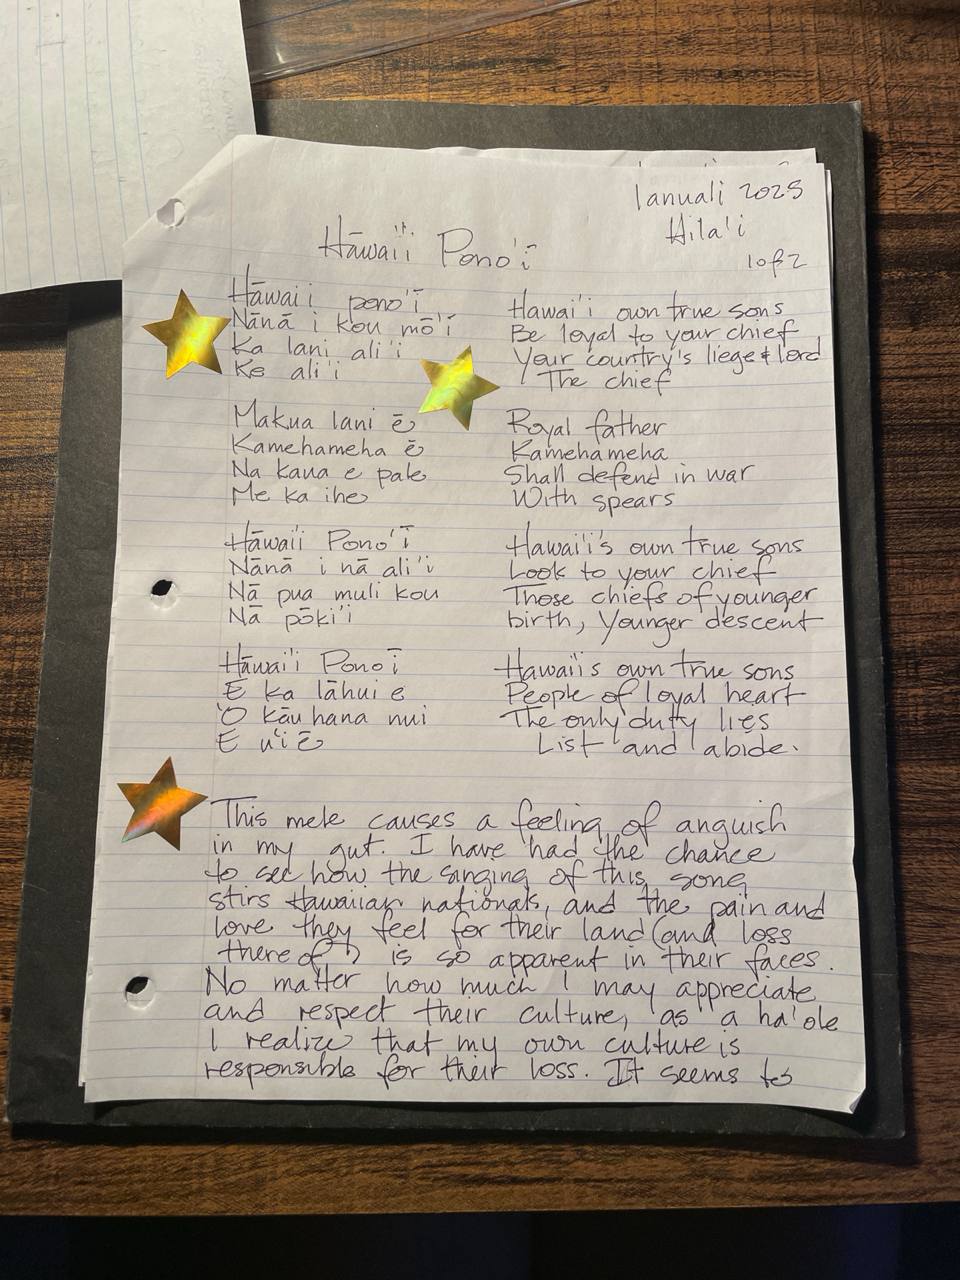 Ianuali 2025
Hila'i
1 of 2
Hāwai'i Pono'ī
Hāwai'i pono'ī
Nānā i kou mō'ī
Ka lani ali'i
Ke ali'i
Hawai'i own true sons
Be loyal to your chief
Your country's liege & lord
The chief
Makua lani ē
Kamehameha ē
Na kaua e pale
Me ka ihe
Royal father
Kamehameha
Shall defend in war
With spears
Hāwai'i Pono'ī
Nānā i nā ali'i
Nā pua muli kou
Nā pōki'i
Hawai'i's own true sons
Look to your chief
Those chiefs of younger
birth, younger descent
Hāwai'i Pono'ī
E ka lāhui e
'O kāu hana nui
E u'i ē
Hawaii's own true sons
People of loyal heart
The only duty lies
List and abide.
This mele causes a feeling of anguish
in my gut. I have had the chance
to see how the singing of this song
stirs Hawaiian nationals, and the pain and
love they feel for their land (and loss
there of) is so apparent in their faces.
No matter how much I may appreciate
and respect their culture, as a ha'ole
I realize that my own culture is
responsible for their loss. It seems to